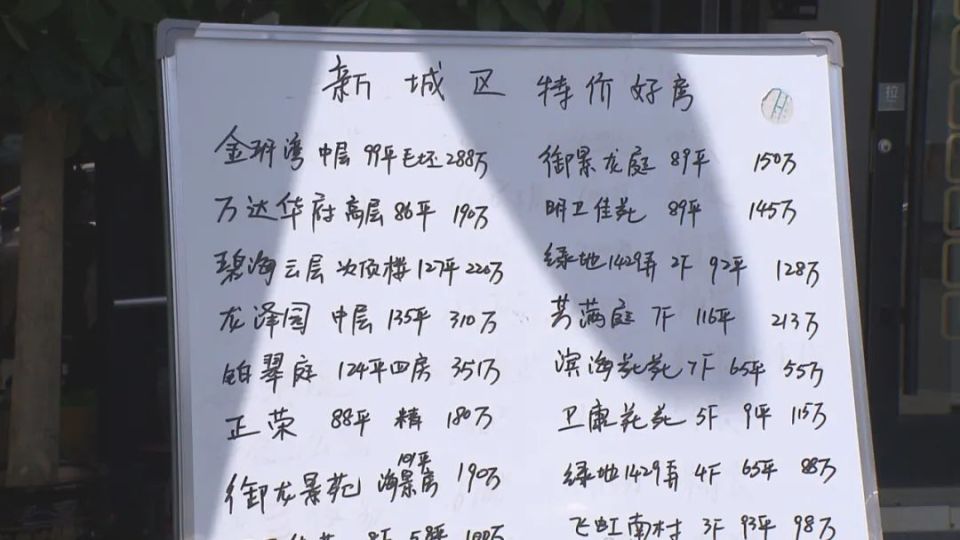 新城区 特价好房
金玥湾 中层 99平毛坯 288万
万达华府 高层 86平 190万
碧海云层 次顶楼 127平 220万
龙泽园 中层 135平 310万
铂翠庭 124平四房 351万
正荣 88平 精 180万
御龙景苑 101平 海景房 190万
8F 58平 100万
御景龙庭 89平 150万
明卫佳苑 89平 145万
绿地1429弄 2F 92平 128万
共满庭 7F 116平 213万
滨海苑苑 7F 65平 55万
卫康苑苑 5F 9平 115万
绿地1429弄 4F 65平 88万
飞虹南村 3F 93平 98万
拉